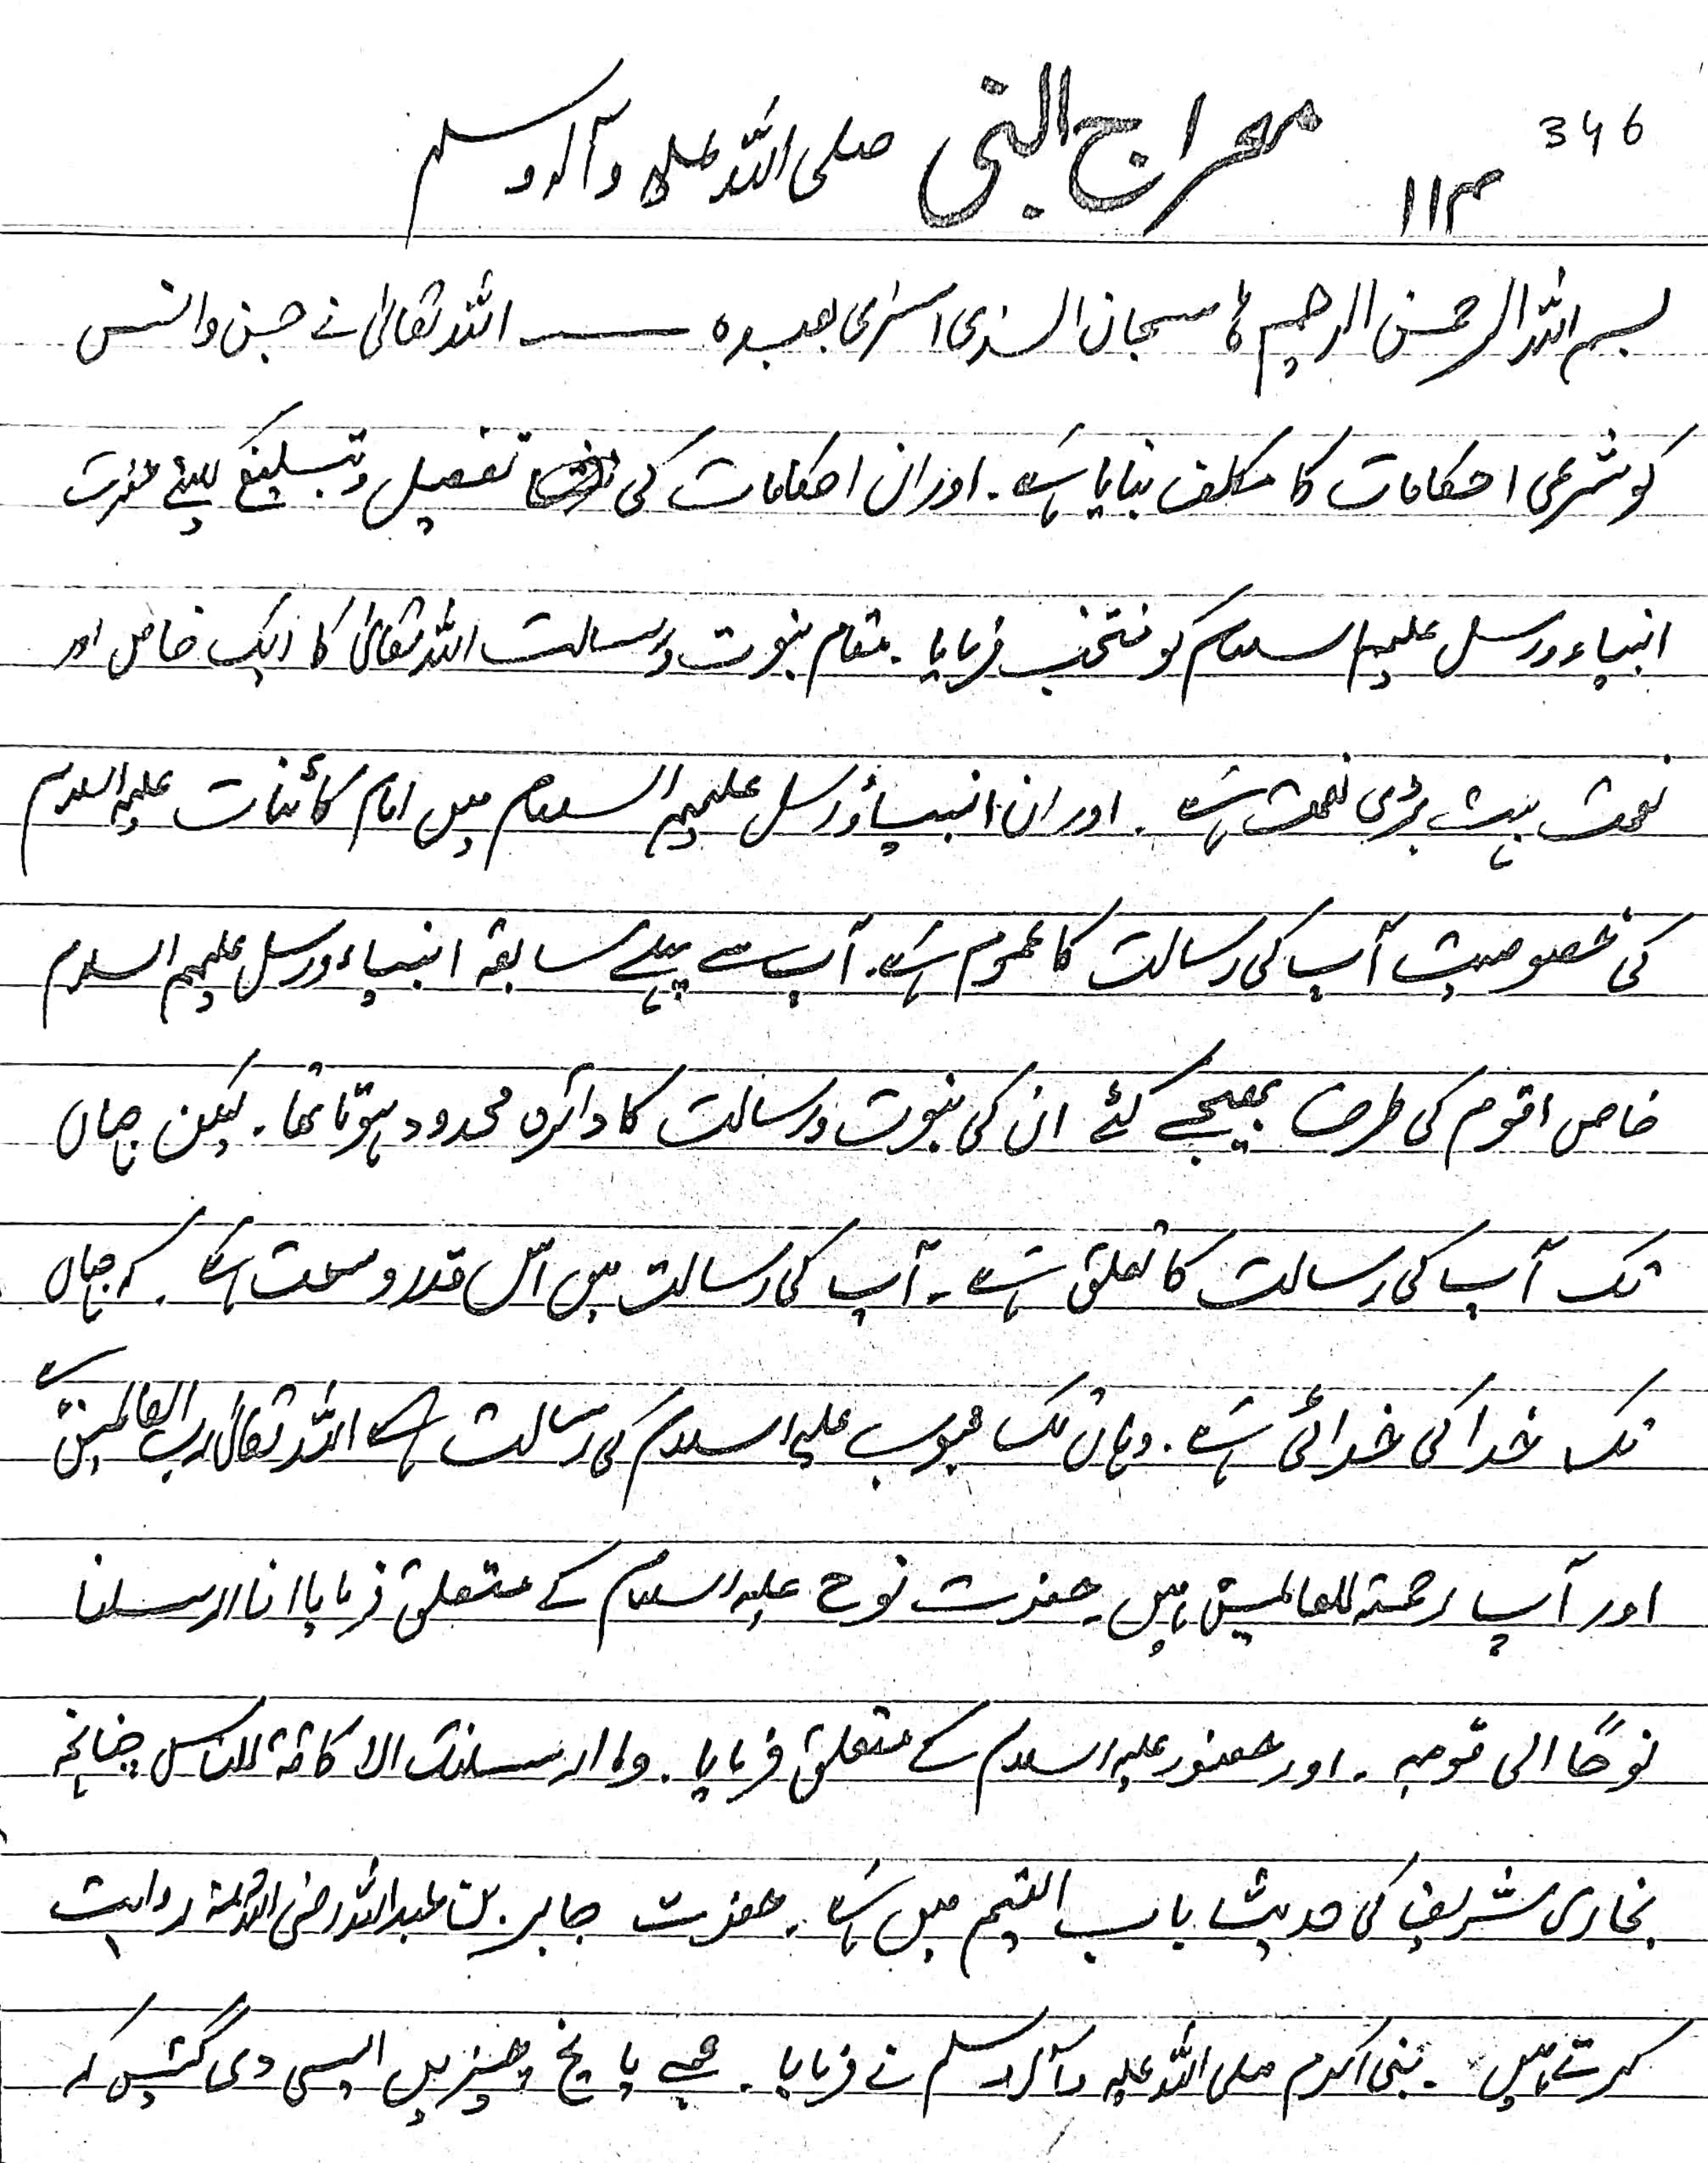 346
۱۱۳
معراج النبی صلی اللہ علیہ وآلہ وسلم
بسم اللہ الرحمن الرحیم ہ سبحان الذی اسریٰ بعبدہ —— اللہ تعالیٰ نے جن و انس
کو شرعی احکامات کا مکلف بنایا ہے۔ اور ان احکامات کی تفصیل و تبلیغ کیلئے حضرت
انبیاء و رسل علیہم السلام کو منتخب فرمایا۔ مقام نبوت و رسالت اللہ تعالیٰ کا ایک خاص اور
نعمت بہت بڑی نعمت ہے۔ اور ان انبیاء و رسل علیہم السلام میں امام کائنات علیہ السلام
کی خصوصیت آپ کی رسالت کا عموم ہے۔ آپ سے پہلے سابقہ انبیاء و رسل علیہم السلام
خاص اقوم کی طرف بھیجے گئے ان کی نبوت و رسالت کا دائرہ محدود ہوتا تھا۔ لیکن جہاں
تک آپ کی رسالت کا تعلق ہے۔ آپ کی رسالت میں اس قدر وسعت ہے۔ کہ جہاں
تک خدا کی خدائی ہے۔ وہاں تک محبوب علیہ السلام کی رسالت ہے اللہ تعالیٰ رب العالمین ہے
اور آپ رحمۃ للعالمین ہیں۔ حضرت نوح علیہ السلام کے متعلق فرمایا انا ارسلنا
نوحاً الی قومہ۔ اور حضور علیہ السلام کے متعلق فرمایا۔ وما ارسلنٰک الا کافۃ للناس چنانچہ
بخاری شریف کی حدیث باب التیمم میں ہے۔ حضرت جابر بن عبداللہ رضی اللہ عنہ روایت
کرتے ہیں۔ نبی اکرم صلی اللہ علیہ وآلہ وسلم نے فرمایا۔ مجھے پانچ چیزیں ایسی دی گئیں کہ